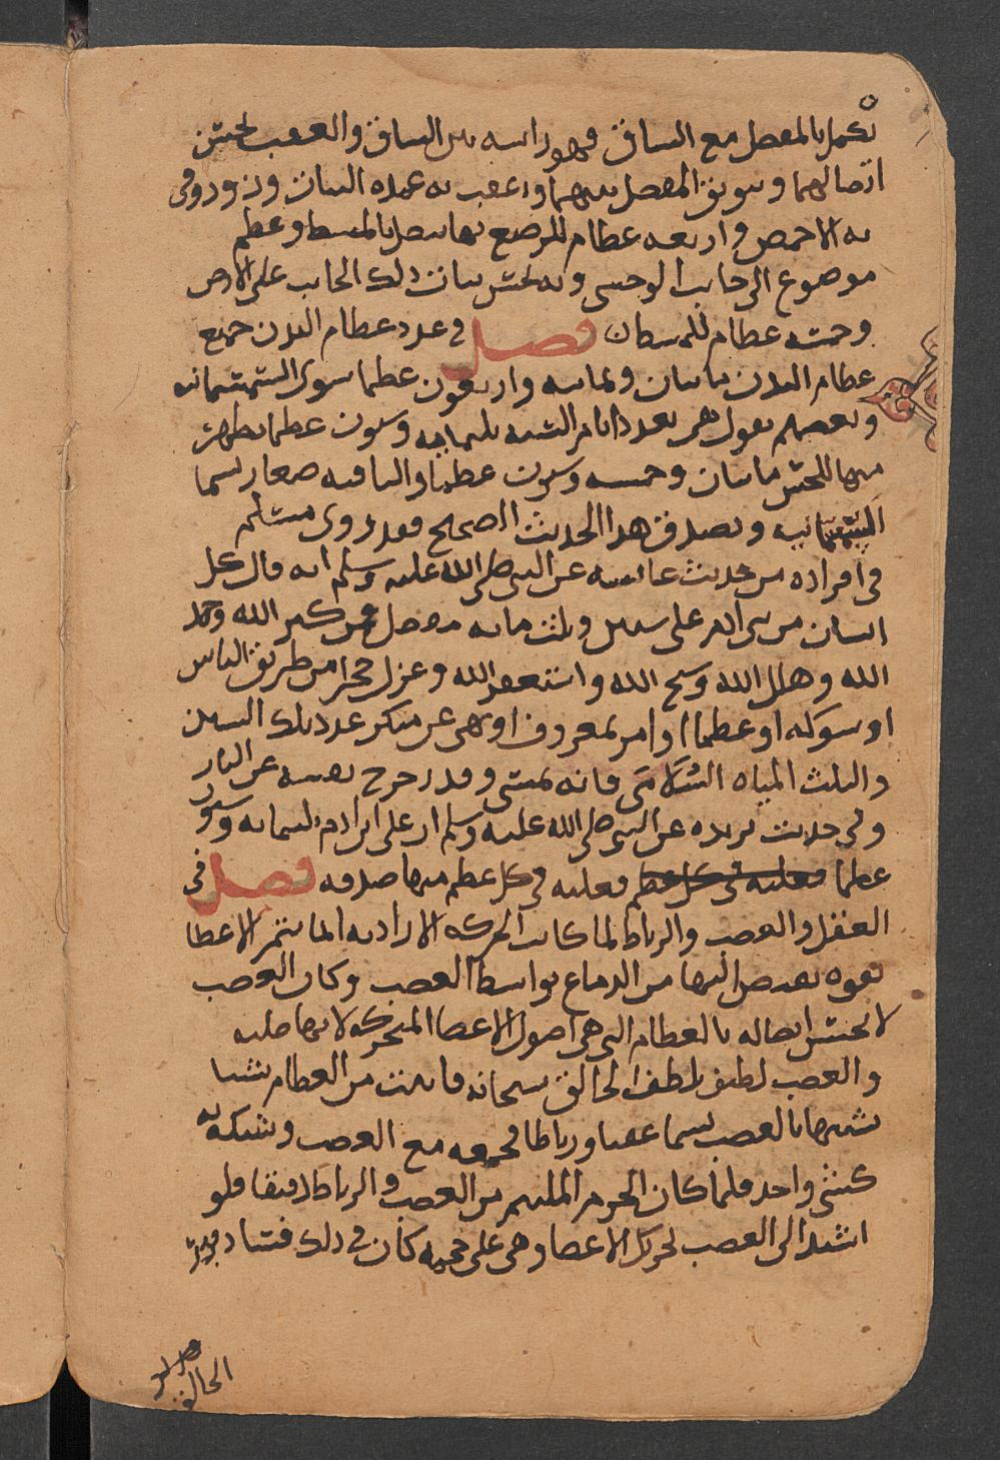 تكمل بالمفصل مع الساق فهو راسه بين الساق والعقب يحسن
اتصالهما ويوثق المفصل بينهما وعقب به عمده الثبات وزورقى
به الاخمص واربعه عظام للرصغ بها يتصل بالمشط وعظم
موضوع الى جانب الوحشى وبه يحسن ثبات ذلك الجانب على الارض
وخمسه عظام للمشط فصل فى عدد عظام البدن جميع
عظام البدن مايتان وثمانيه واربعون عظما سوى السمسمانيه
وبعضهم يقول هى بعدد ايام السنه ثلثمايه وستون عظما يظهر
منها للحس مايتان وخمسه وستون عظما والباقيه صغار تسما
السمسمانيه ويصدق هذا الحديث الصحيح فقد روى مسلم
فى افراده من حديث عائشه عن النبى صلى الله عليه وسلم انه قال كل
انسان من بنى ادم على ستين وثلث مايه مفصل فمن كبر الله وحمد
الله وهلل الله وسبح الله واستغفر الله وعزل حجرا من طريق الناس
او شوكه او عظما او امر بمعروف او نهى عن منكر عدد تلك الستين
والثلث المياه السُّلامَى فانه يمسى وقد زحزح نفسه عن النار
وفى حديث بريده عن النبى صلى الله عليه وسلم ان على ابن ادم ثلثمايه وستون
عظما فعليه فى كل عظم فعليه فى كل عظم منها صدقه فصل فى
العضل والعصب والرباط لما كانت الحركه الاراديه انما تتم للاعضا
بقوه تفيض اليها من الدماغ بواسطه العصب وكان العصب
لا يحسن اتصاله بالعظام التى هى اصول الاعضا المتحركه لانها صلبه
والعصب لطيف تلطف الخالق سبحانه فانبت من العظام شيا
شبيها بالعصب يسما عقبا ورباطا فجمعه مع العصب وشبكه به
كشى واحد فلما كان الجرم الملتيم من العصب والرباط دقيقا فلو
اسند الى العصب تحريك الاعضا وهى على حجمه كان فى ذلك فساد
الخالق